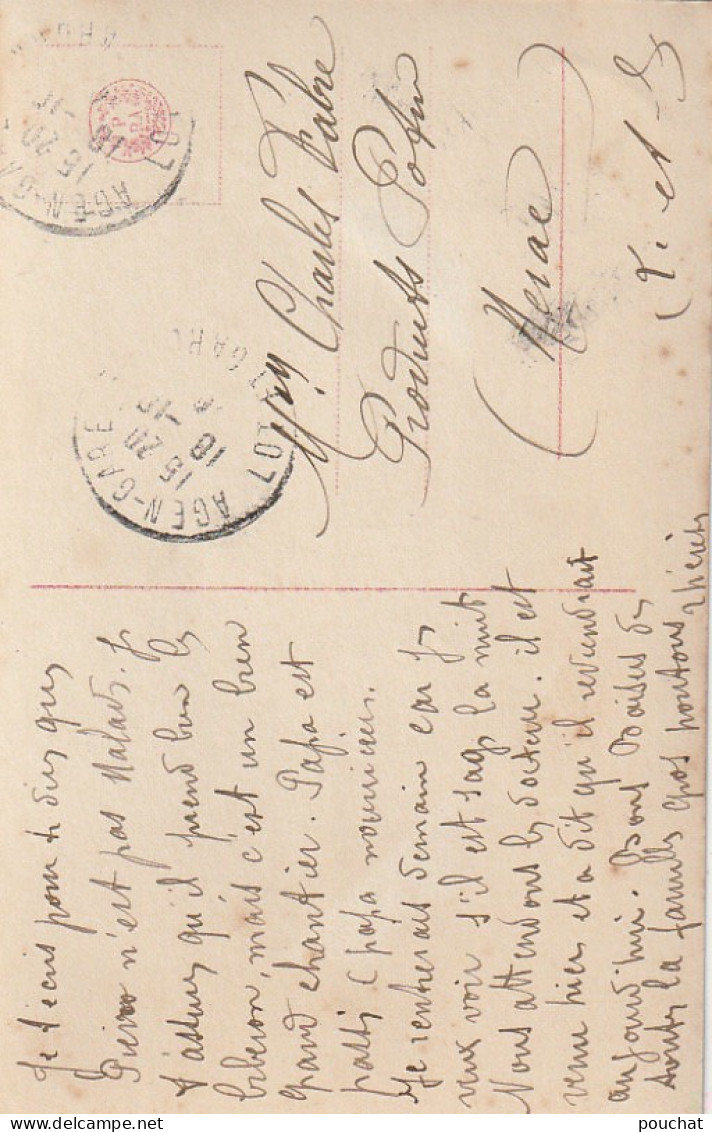 Je t'écris pour te dire que
Pierre n'est pas malade. Je
t'assure qu'il prend bien le
biberon, mais c'est un bien
grand chantier. Papa est
parti
Je rentrerais demain car je
veux voir s'il est sage la nuit
Nous attendons le docteur. il est
venu hier et a dit qu'il reviendrait
aujourd'hui. Bons Baisers de
toute la famille gros poutous chéris
Mme Charles Fabre
Produits Potin
Nérac
(L. et G
AGEN-GARE
15 20
18
LOT-ET-GAR
AGEN-GA
15 20
18
LOT
pouchat